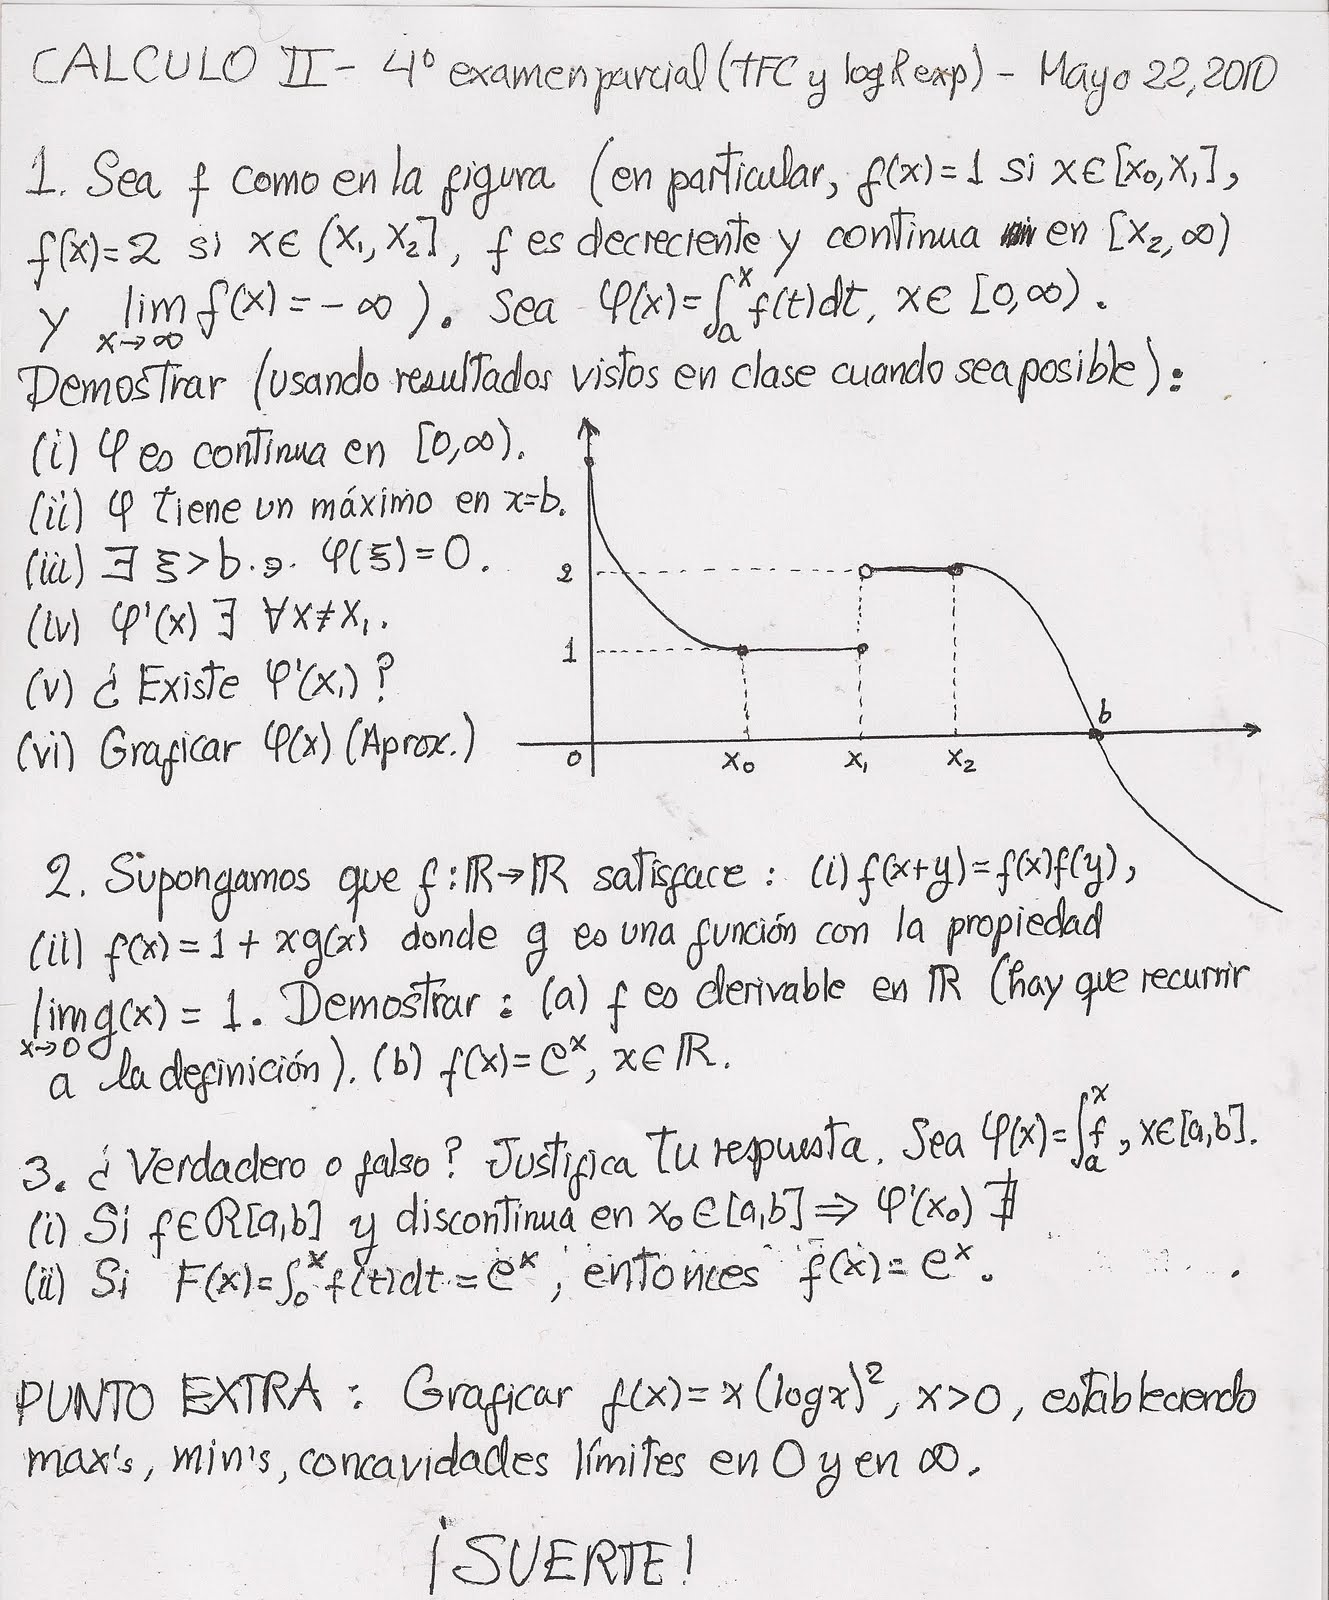 CALCULO II - 4º examen parcial (TFC y log & exp) - Mayo 22, 2010
1. Sea f como en la figura (en particular, f(x)=1 si x∈[x₀,x₁],
f(x)=2 si x∈(x₁,x₂], f es decreciente y continua en [x₂,∞)
y lim f(x)=-∞). Sea φ(x)=∫ₐˣ f(t)dt, x∈[0,∞).
x→∞
Demostrar (usando resultados vistos en clase cuando sea posible):
(i) φ es continua en [0,∞).
(ii) φ tiene un máximo en x=b.
(iii) ∃ ξ>b .∋. φ(ξ)=0.
(iv) φ'(x) ∃ ∀x≠x₁.
(v) ¿Existe φ'(x₁)?
(vi) Graficar φ(x) (Aprox.)
2
1
b
0 x₀ x₁ x₂
2. Supongamos que f:ℝ→ℝ satisface: (i) f(x+y)=f(x)f(y),
(ii) f(x)=1+xg(x) donde g es una función con la propiedad
lim g(x)=1. Demostrar: (a) f es derivable en ℝ (hay que recurrir
x→0
a la definición). (b) f(x)=eˣ, x∈ℝ.
3. ¿Verdadero o falso? Justifica tu respuesta. Sea φ(x)=∫ₐˣ f, x∈[a,b].
(i) Si f∈R[a,b] y discontinua en x₀∈[a,b] ⇒ φ'(x₀) ∄
(ii) Si F(x)=∫₀ˣ f(t)dt=eˣ, entonces f(x)=eˣ.
PUNTO EXTRA: Graficar f(x)=x(logx)², x>0, estableciendo
max's, min's, concavidades límites en 0 y en ∞.
¡SUERTE!